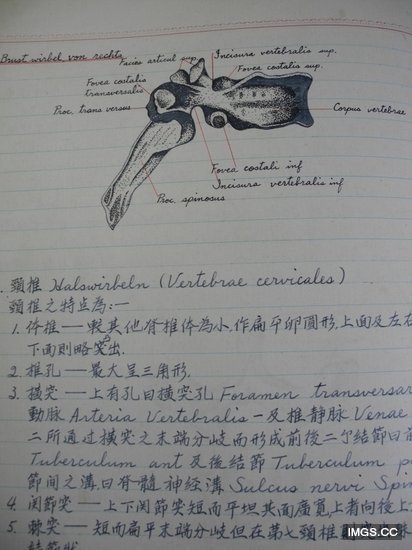 Brust wirbel von rechts
Facies articul sup.
Incisura vertebralis sup.
Fovea costalis sup.
Fovea costalis
transversalis
Proc. transversus
Corpus vertebrae
Fovea costali inf
Incisura vertebralis inf
Proc. spinosus
頸椎 Halswirbeln (Vertebrae cervicales)
頸椎之特点為:—
1. 体椎 — 較其他脊椎体為小.作扁平卵圓形,上面及左右
下面則略突出.
2. 椎孔 — 最大呈三角形.
3. 横突 — 上有孔曰横突孔 Foramen transversar
動脉 Arteria Vertebralis 一及椎静脉 Venae
二所通过横突之末端分岐而形成前後二个結節曰前
Tuberculum ant 及後結節 Tuberculum p
節间之溝曰脊髓神经溝 Sulcus nervi Spin
4. 関節突 — 上下関節突短而平坦其面廣寬,上者向後上
5. 棘突 — 短而扁平末端分岐但在第七頸椎
IMGS.CC